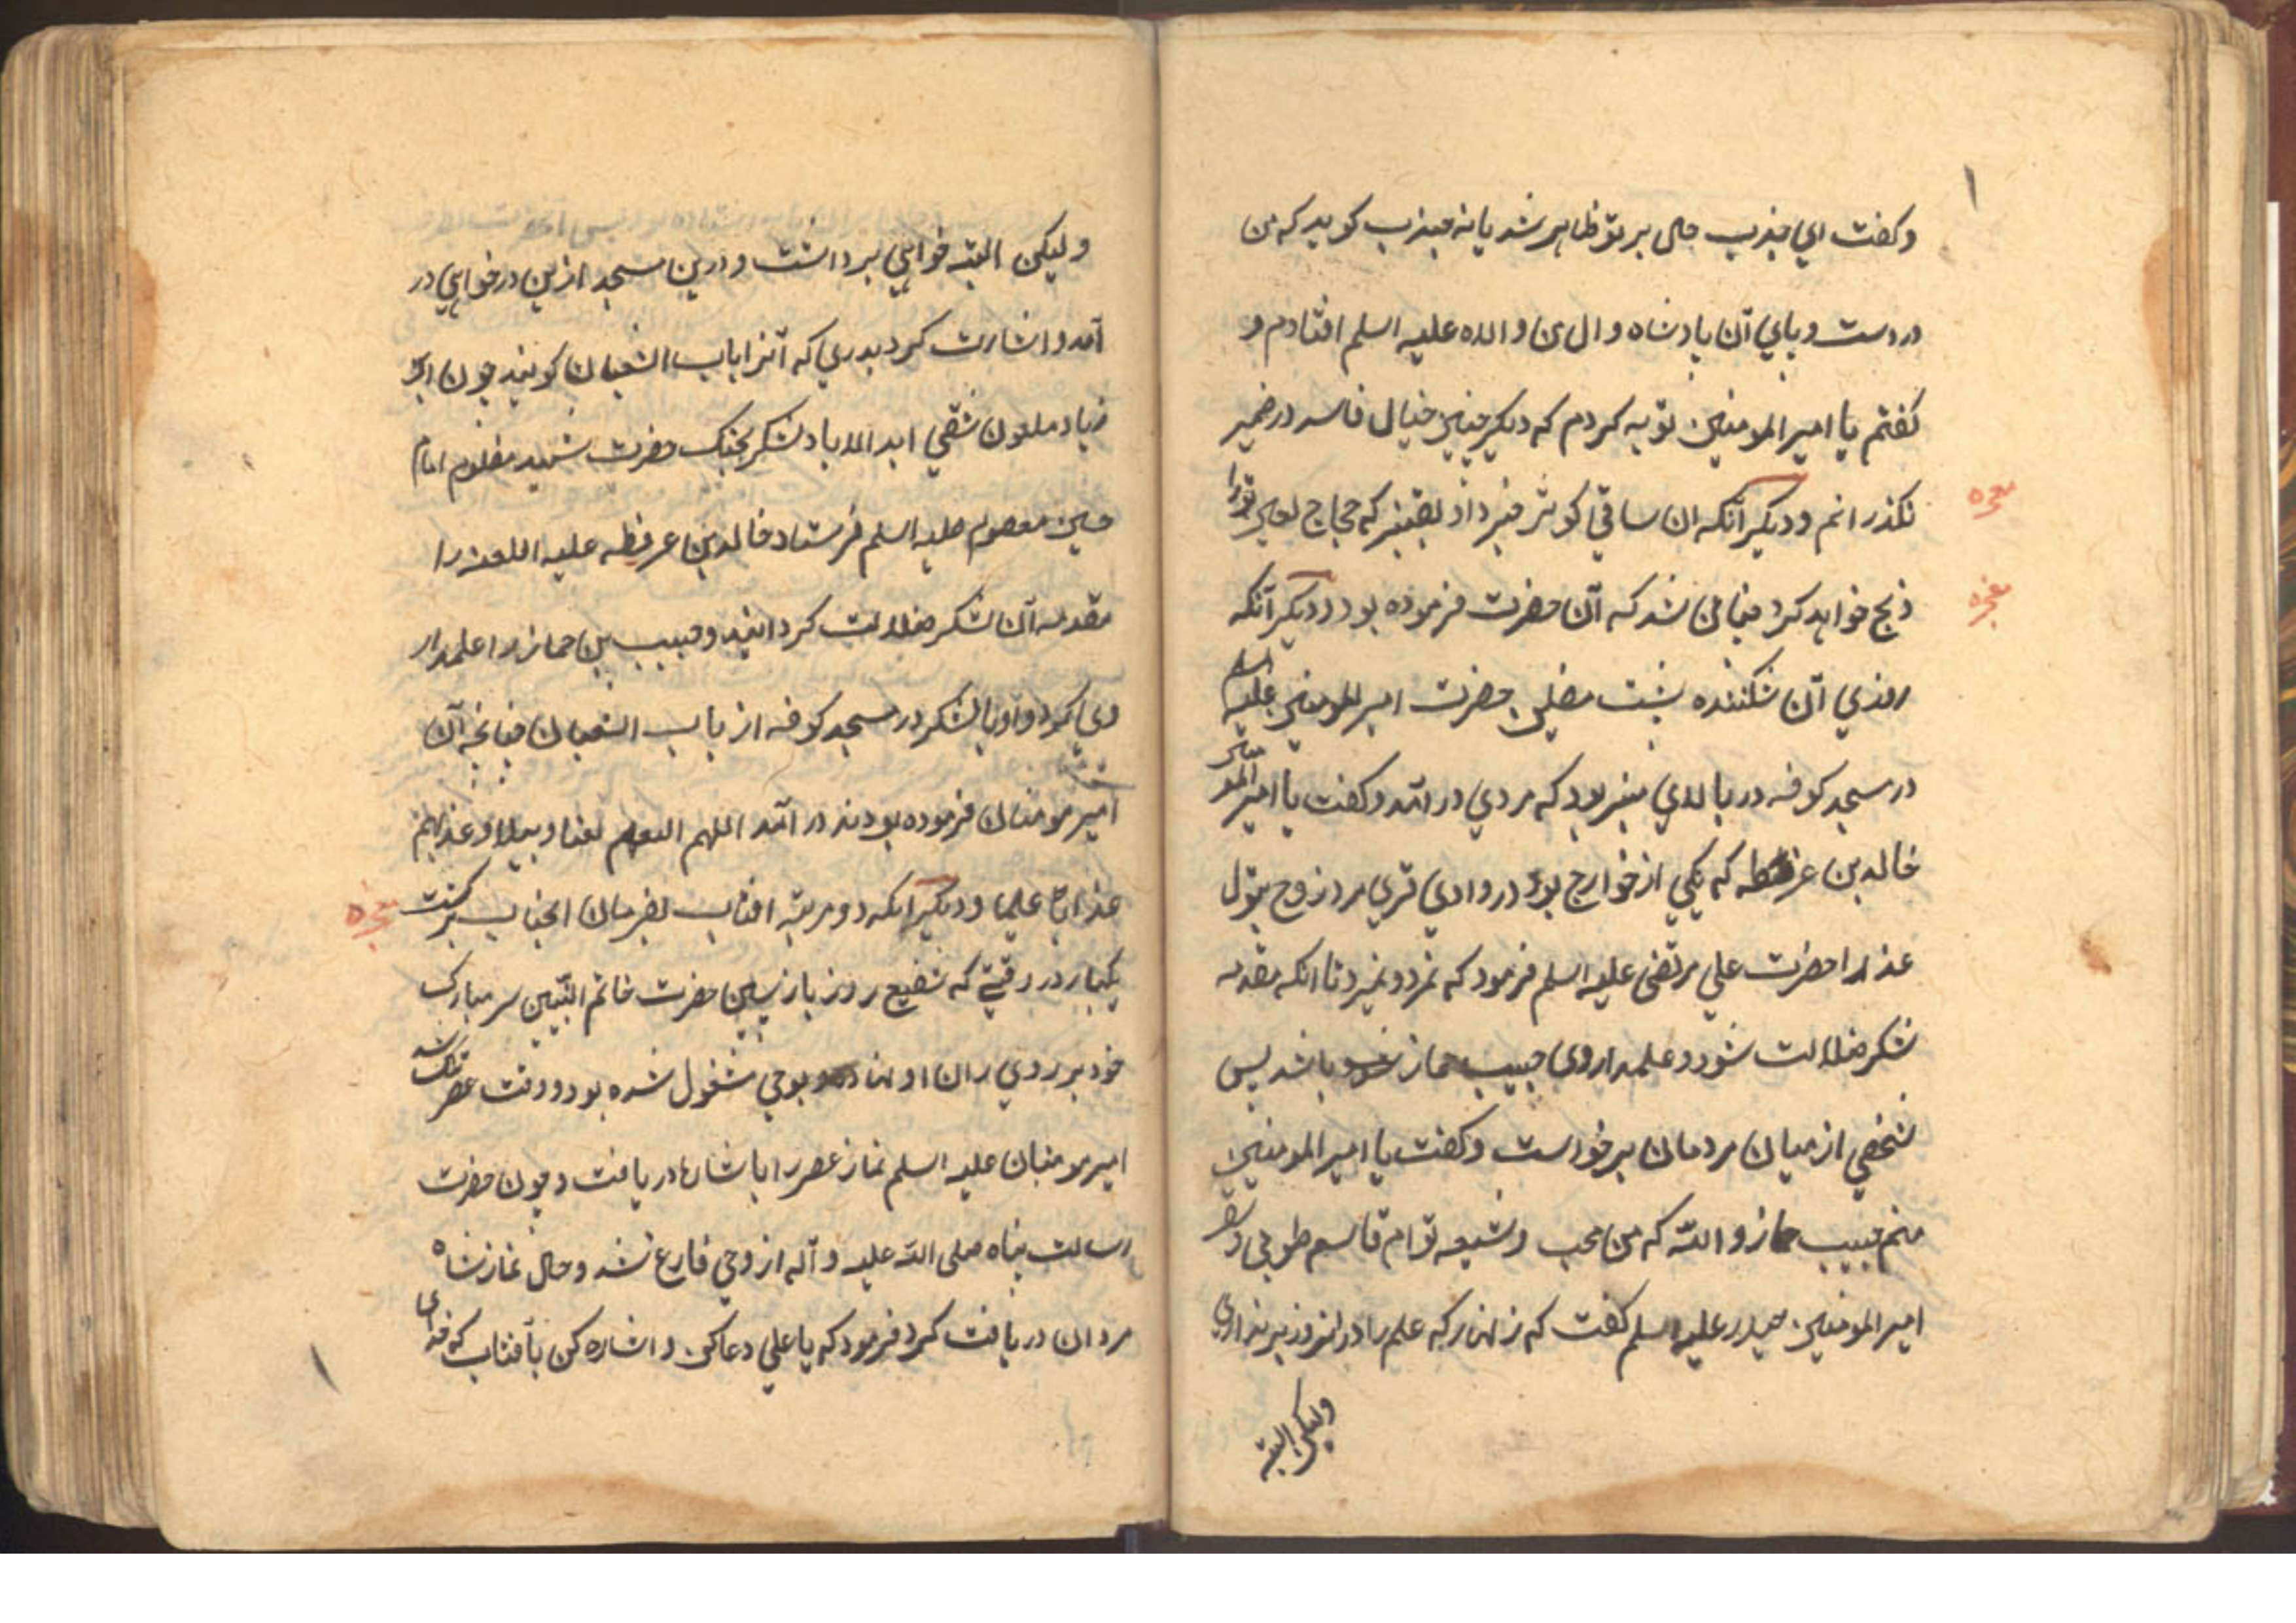 وكفت اي جندب حال بر تو ظاهر شد يا نه جندب كويد كه من
در دست و پاي آن پادشاه وال من والاه عليه اسلم افتادم و
كفتم يا امير المومنين توبه كردم كه ديكر چنين خيال فاسد در ضمير
نكذرانم و ديكر آنكه ان ساقي كوثر خبر داد بقنبر كه حجاج لعين تو را
معجزه
ذبح خواهد كرد چنان شد كه آن حضرت فرموده بود و ديكر آنكه
معجزه
روزي آن شكننده پشت مضلين حضرت امير المومنين عليه اسلم
در مسجد كوفه در بالاي منبر بود كه مردي در آمد و كفت يا امير المومنين
خالد بن عرفطه كه يكي از خوارج بود در وادي قري مرد زوج بتول
عذرا حضرت علي مرتضي عليه اسلم فرمود كه نمرد و نميرد تا انكه مقدمه
لشكر ضلالت شود و علمدار وي حبيب حماز باشد پس
شخصي از ميان مردمان برخواست و كفت يا امير المومنين
منم حبيب حماز و الله كه من محب و شيعه توام قاسم طوبي و سقر
امير المومنين حيدر عليه اسلم كفت كه زنهار كه علم را در انروز بر نداري
وليكن البته
وليكن البته خواهي برداشت و درين مسجد ازين در خواهي در
آمد و اشارت كرد بدري كه آنرا باب الثعبان كويند چون ابن
زياد ملعون شقي ابد الاباد لشكر بجنك حضرت شهيد مظلوم امام
حسين معصوم عليه اسلم فرستاد خالد بن عرفطه عليه اللعنه را
مقدمه آن لشكر ضلالت كردانيد و حبيب بن حماز را علمدار
وي كرد و او با لشكر در مسجد كوفه از باب الثعبان چنانچه آن
امير مومنان فرموده بودند در آمد اللهم العنهم لعنا وبيلا و عذبهم
عذابا اليما و ديكر آنكه دو مرتبه افتاب بفرمان انجناب بركشت
معجزه
يكبار در وقتي كه شفيع روز بازپسين حضرت خاتم النبيين سر مبارك
خود بر روي ران او نهاده بوحي مشغول شده بود و وقت عصر تنك شد
امير مومنان عليه اسلم نماز عصر را باشارها دريافت و چون حضرت
رسالت پناه صلى الله عليه و آله از وحي فارغ شد و حال نماز شاه
مردان دريافت كرد فرمود كه يا علي دعا كن و اشاره كن بآفتاب كو خداي